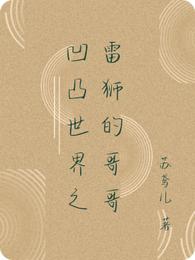 凹凸世界之
雷狮的哥哥
苏莺儿 著